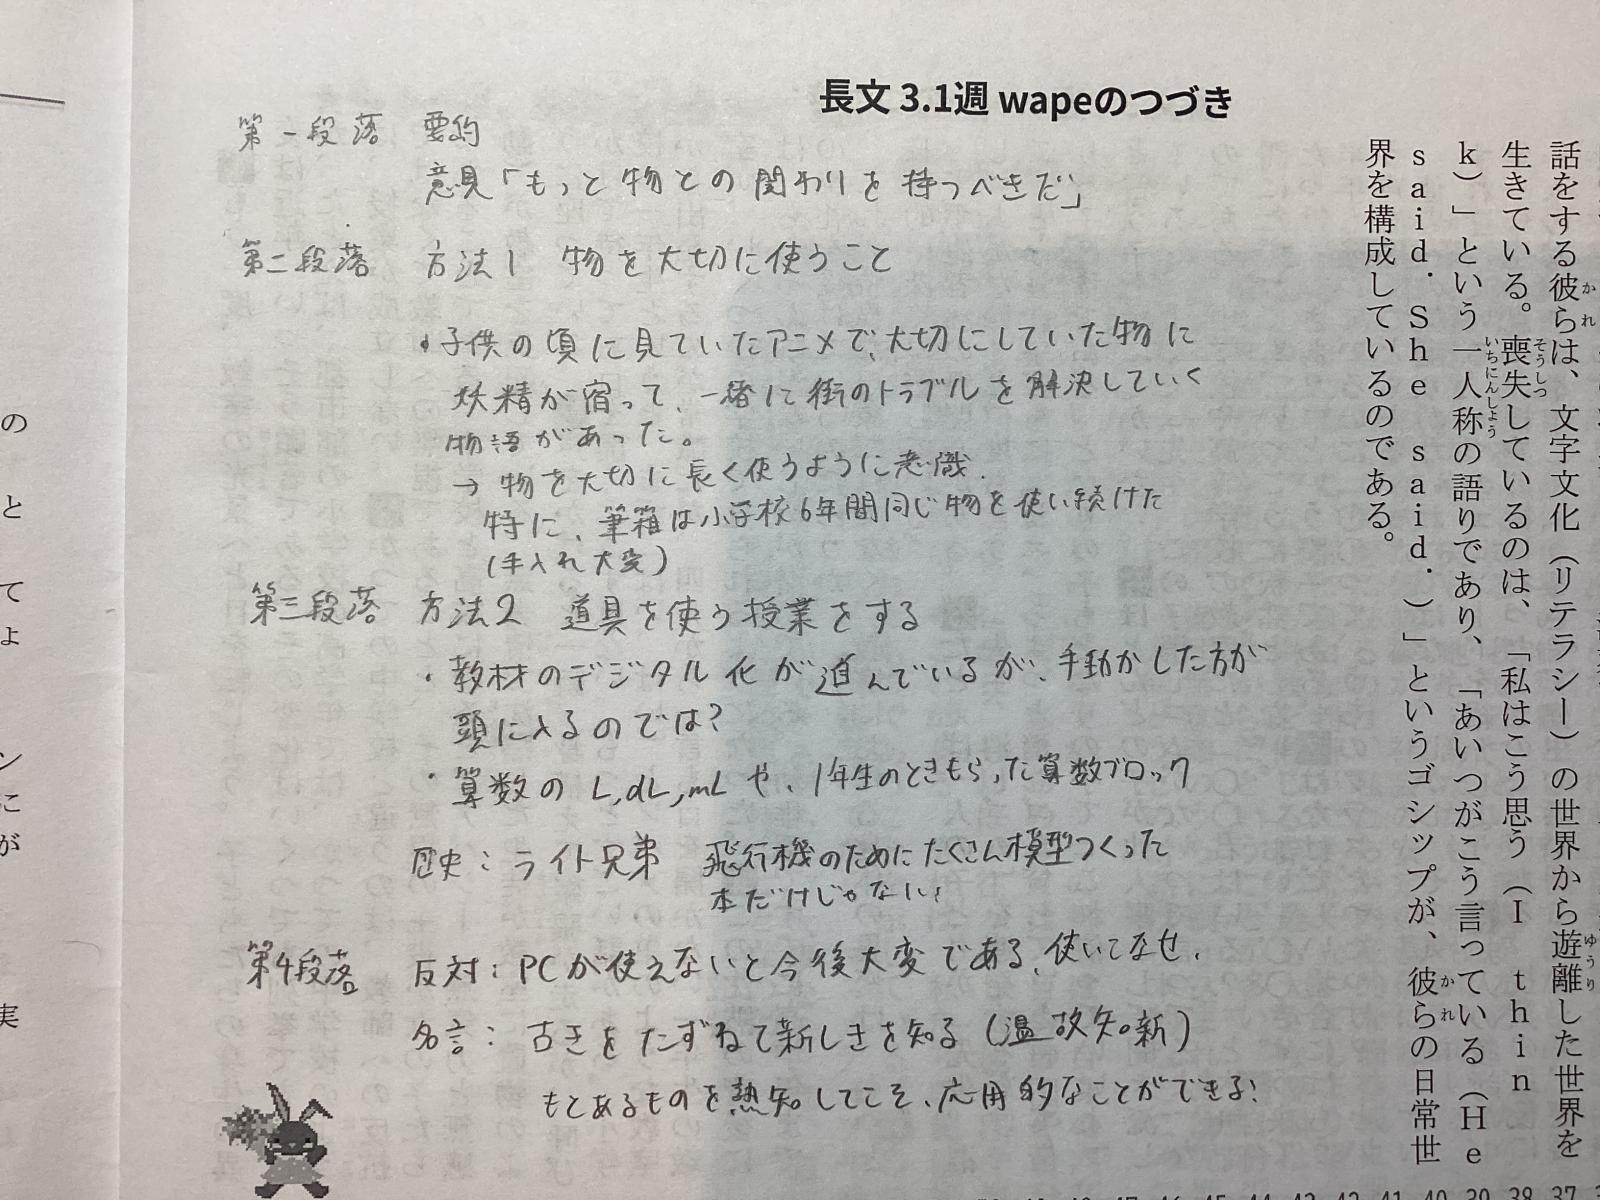 長文 3.1週 wapeのつづき
第一段落 要約
意見「もっと物との関わりを持つべきだ」
第二段落 方法1 物を大切に使うこと
・子供の頃に見ていたアニメで、大切にしていた物に
妖精が宿って、一番に街のトラブルを解決していく
物語があった。
→ 物を大切に長く使うように意識.
特に、筆箱は小学校6年間同じ物を使い続けた
(手入れ大変)
第三段落 方法2 道具を使う授業をする
・教材のデジタル化が進んでいるが、手動かした方が
頭に入るのでは?
・算数の L,dL,mL や、1年生のときもらった算数ブロック
歴史:ライト兄弟 飛行機のためにたくさん模型つくった
本だけじゃない!
第4段落 反対:PCが使えないと今後大変である、使いこなせ.
名言:古きをたずねて新しきを知る(温故知新)
もとあるものを熟知してこそ、応用的なことができる!
話をする彼らは、文字文化(リテラシー)の世界から遊離した世界を
生きている。喪失しているのは、「私はこう思う(I thin
k)」という一人称の語りであり、「あいつがこう言っている(He
said. She said.)」というゴシップが、彼らの日常世
界を構成しているのである。
の
と
て
ょ
ン
こ
が
実
47 46 45 44 43 42 41 40 39 38 37